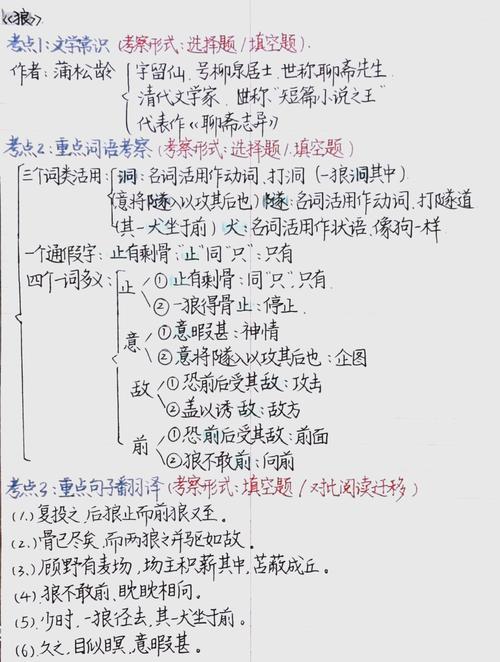 《狼》
考点1:文学常识(考察形式:选择题/填空题).
作者:蒲松龄 字留仙.号柳泉居士.世称聊斋先生
清代文学家.世称"短篇小说之王"
代表作《聊斋志异》
考点2:重点词语考察(考察形式:选择题/填空题)
三个词类活用:洞:名词活用作动词.打洞(一狼洞其中)
(意将隧入以攻其后也)隧:名词活用作动词.打隧道
(其一犬坐于前)犬:名词活用作状语.像狗一样
一个通假字:止有剩骨:"止"同"只":只有
四个一词多义:止 ①止有剩骨:同"只",只有
②一狼得骨止:停止.
意 ①意暇甚:神情
②意将隧入以攻其后也:企图
敌 ①恐前后受其敌:攻击
②盖以诱敌:敌方
前 ①恐前后受其敌:前面
②狼不敢前:向前
考点3:重点句子翻译(考察形式:填空题/对比阅读迁移)
(1.)复投之,后狼止而前狼又至。
(2.)骨已尽矣,而两狼之并驱如故。
(3.)顾野有麦场,场主积薪其中,苫蔽成丘。
(4).狼不敢前、眈眈相向。
(5).少时,一狼径去,其一犬坐于前。
(6).久之,目似瞑,意暇甚。